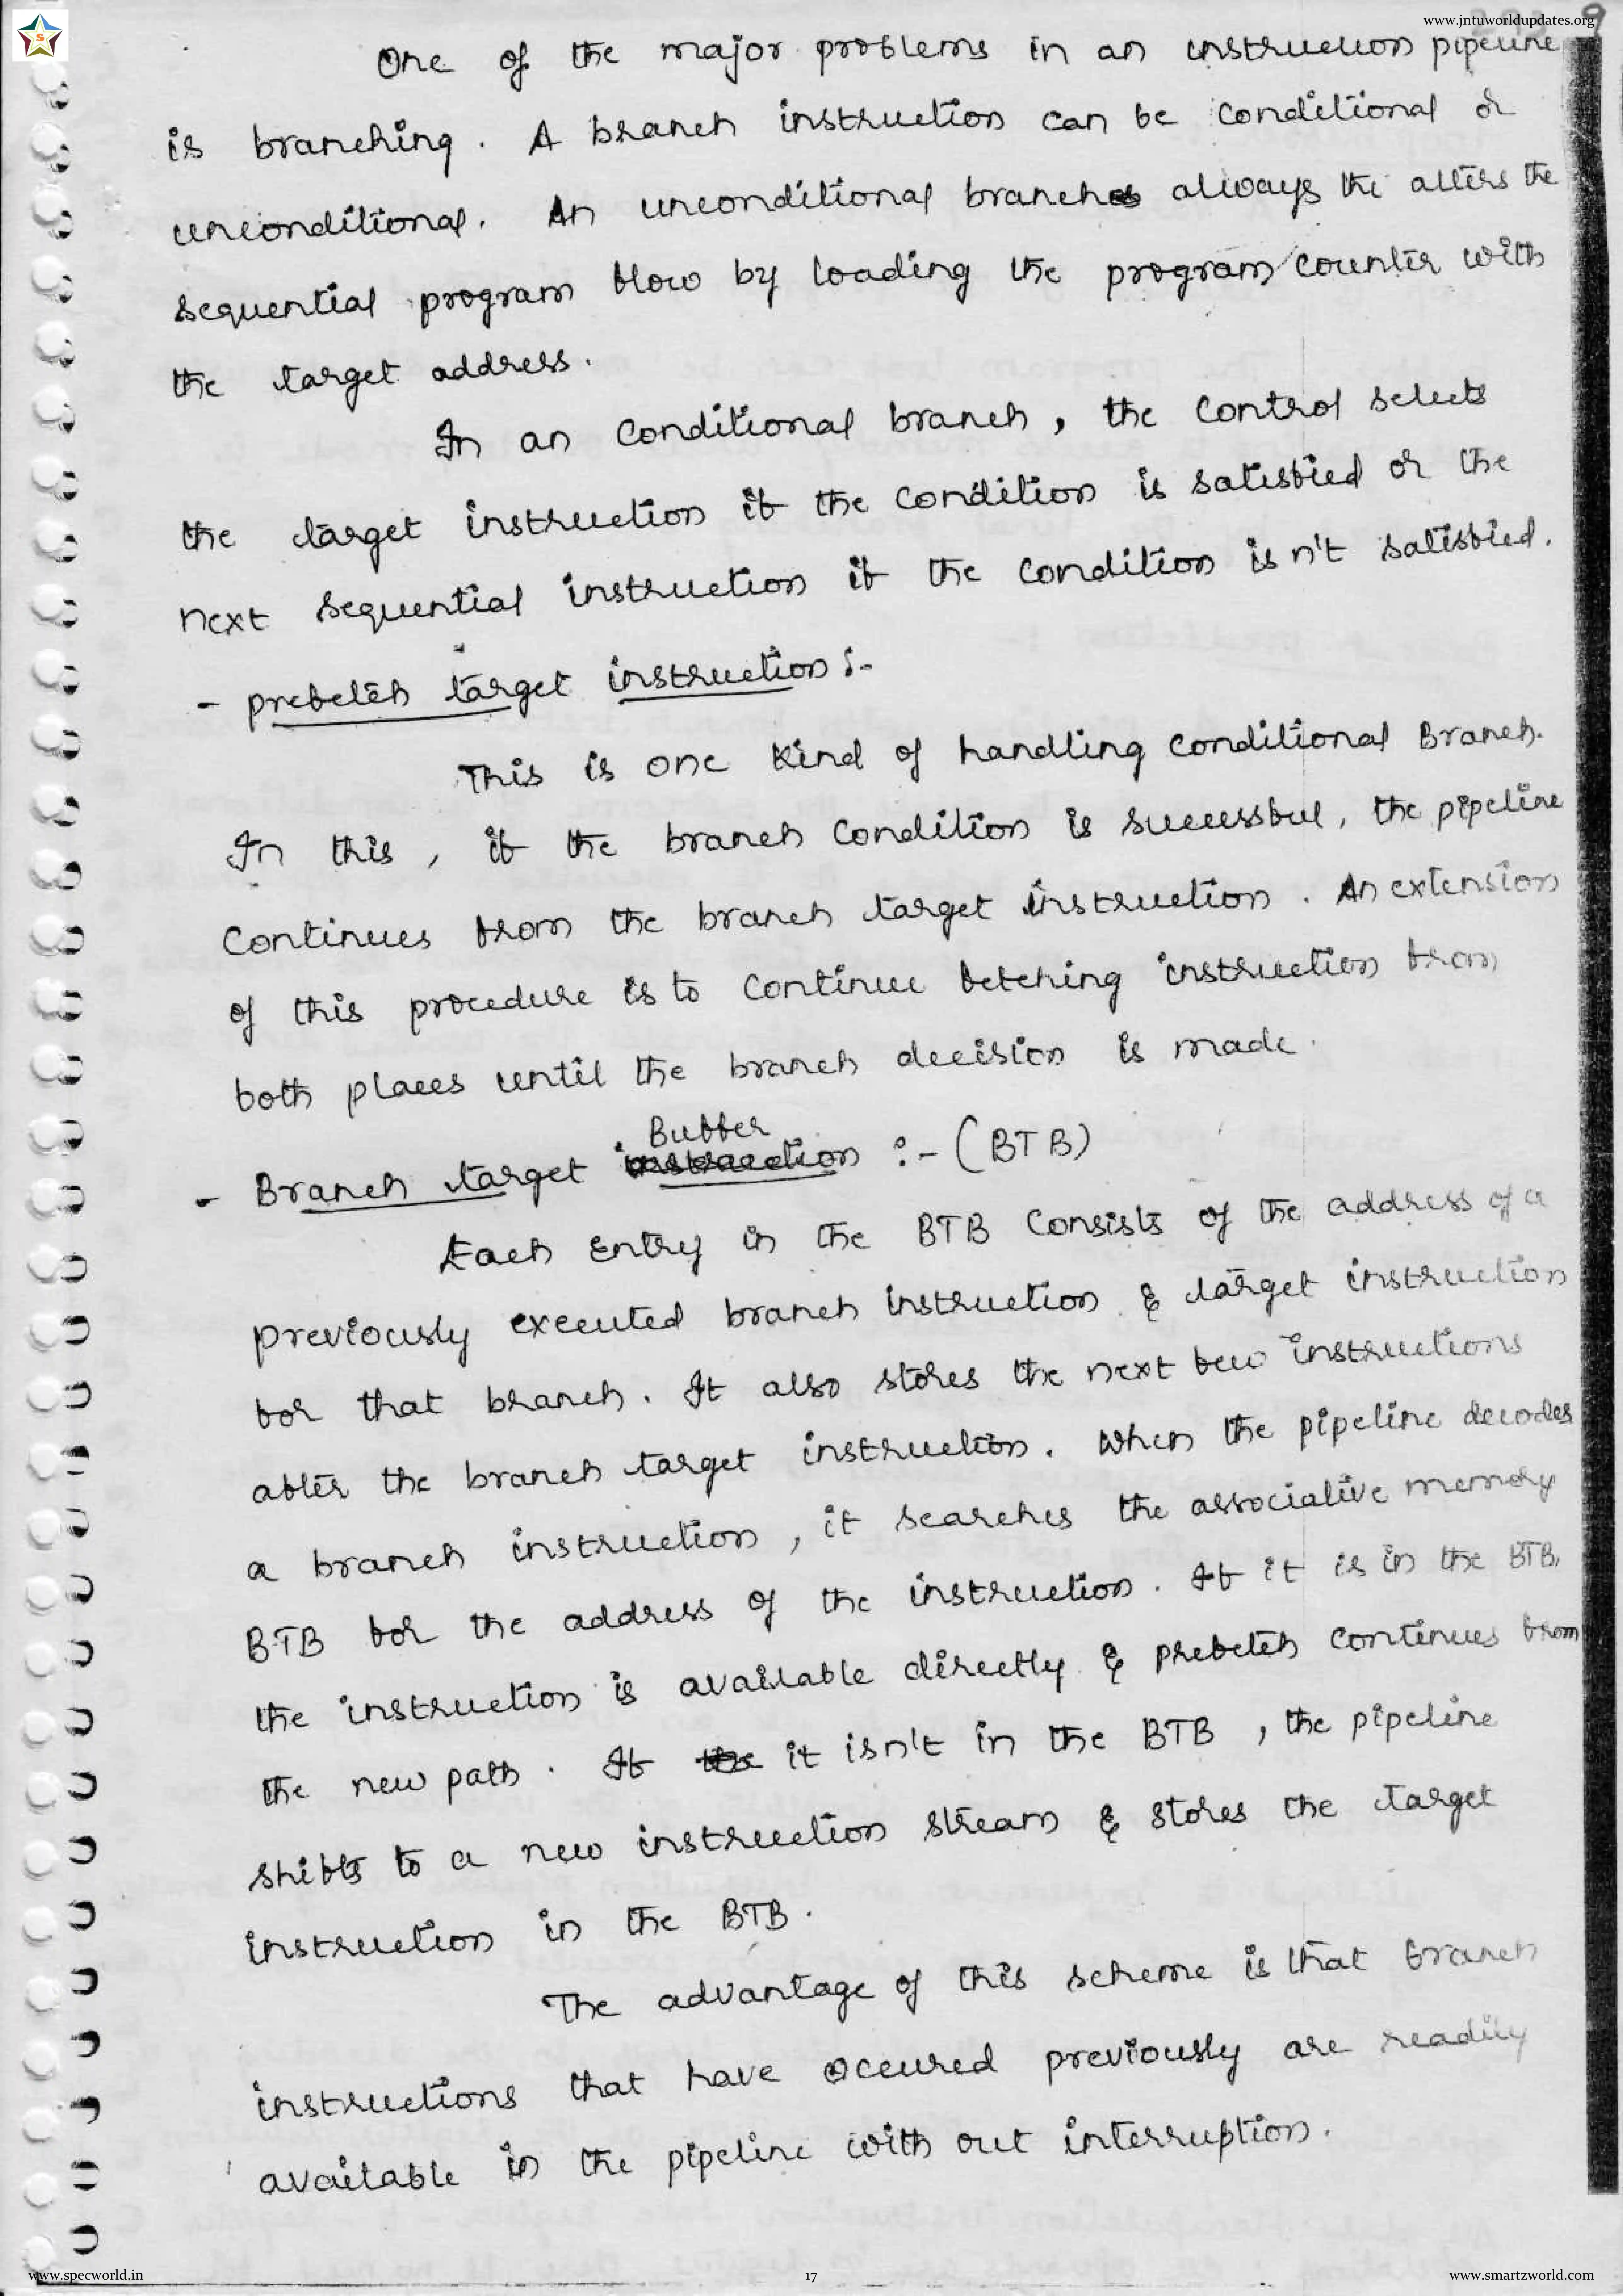 www.jntuworldupdates.org
9
One of the major problems in an instruction pipeline
is branching. A branch instruction can be conditional or
unconditional. An unconditional branch always the alters the
sequential program flow by loading the program counter with
the target address.
In an conditional branch, the control selects
the target instruction if the condition is satisfied or the
next sequential instruction if the condition isn't satisfied.
- prefetch target instruction :-
This is one kind of handling conditional Branch.
In this, if the branch condition is successful, the pipeline
continues from the branch target instruction. An extension
of this procedure is to continue fetching instruction from
both places until the branch decision is made.
Buffer
- Branch target instruction :- (BTB)
Each entry in the BTB consists of the address of a
previously executed branch instruction & target instruction
for that branch. It also stores the next few instructions
after the branch target instruction. When the pipeline decodes
a branch instruction, it searches the associative memory
BTB for the address of the instruction. If it is in the BTB,
the instruction is available directly & prefetch continues from
the new path. If the it isn't in the BTB, the pipeline
shifts to a new instruction stream & stores the target
instruction in the BTB.
The advantage of this scheme is that branch
instructions that have occured previously are readily
available in the pipeline with out interruption.
www.specworld.in
17
www.smartzworld.com